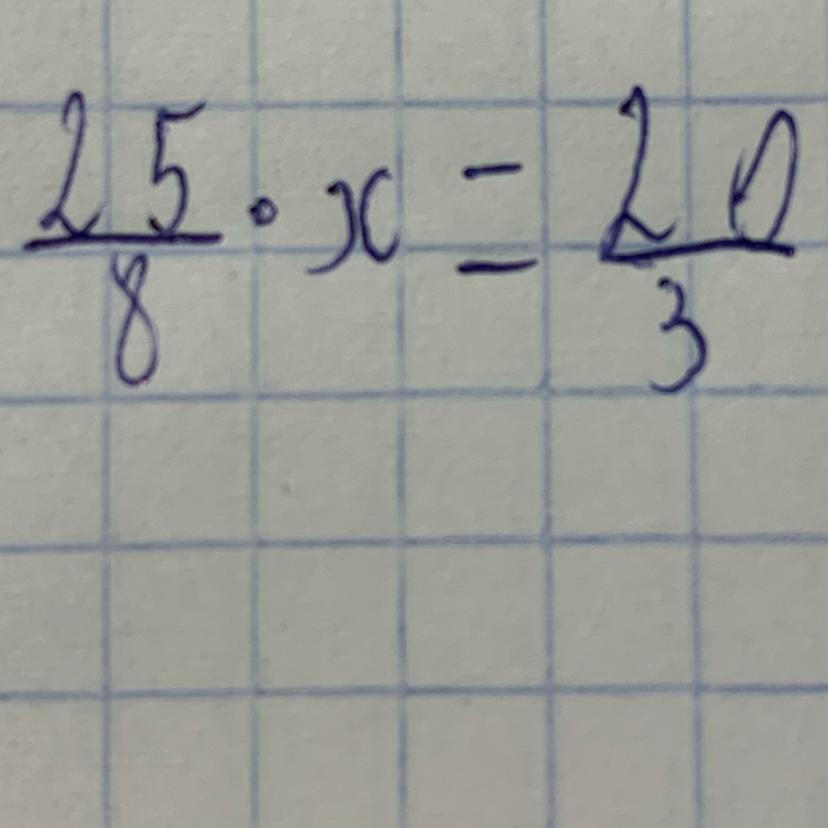 25/8 · x = 20/3